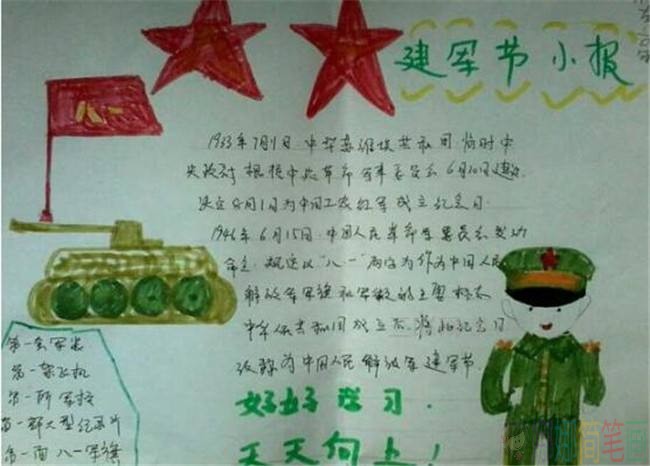 建军节小报
八一
1933年7月1日，中华苏维埃共和国临时中
央政府根据中央革命军事委员会6月30日建议
决定8月1日为中国工农红军成立纪念日
1946年6月15日，中国人民革命军事委员会发动
命令，规定以"八一"两字为作为中国人民
解放军军旗和军徽的主要标志
中华人共和国成立后，将此纪念日
改称为中国人民解放军建军节
好好学习，
天天向上！
第一套军装
第一架飞机
第一所军校
第一部大型纪录片
第一面八一军旗
简笔画